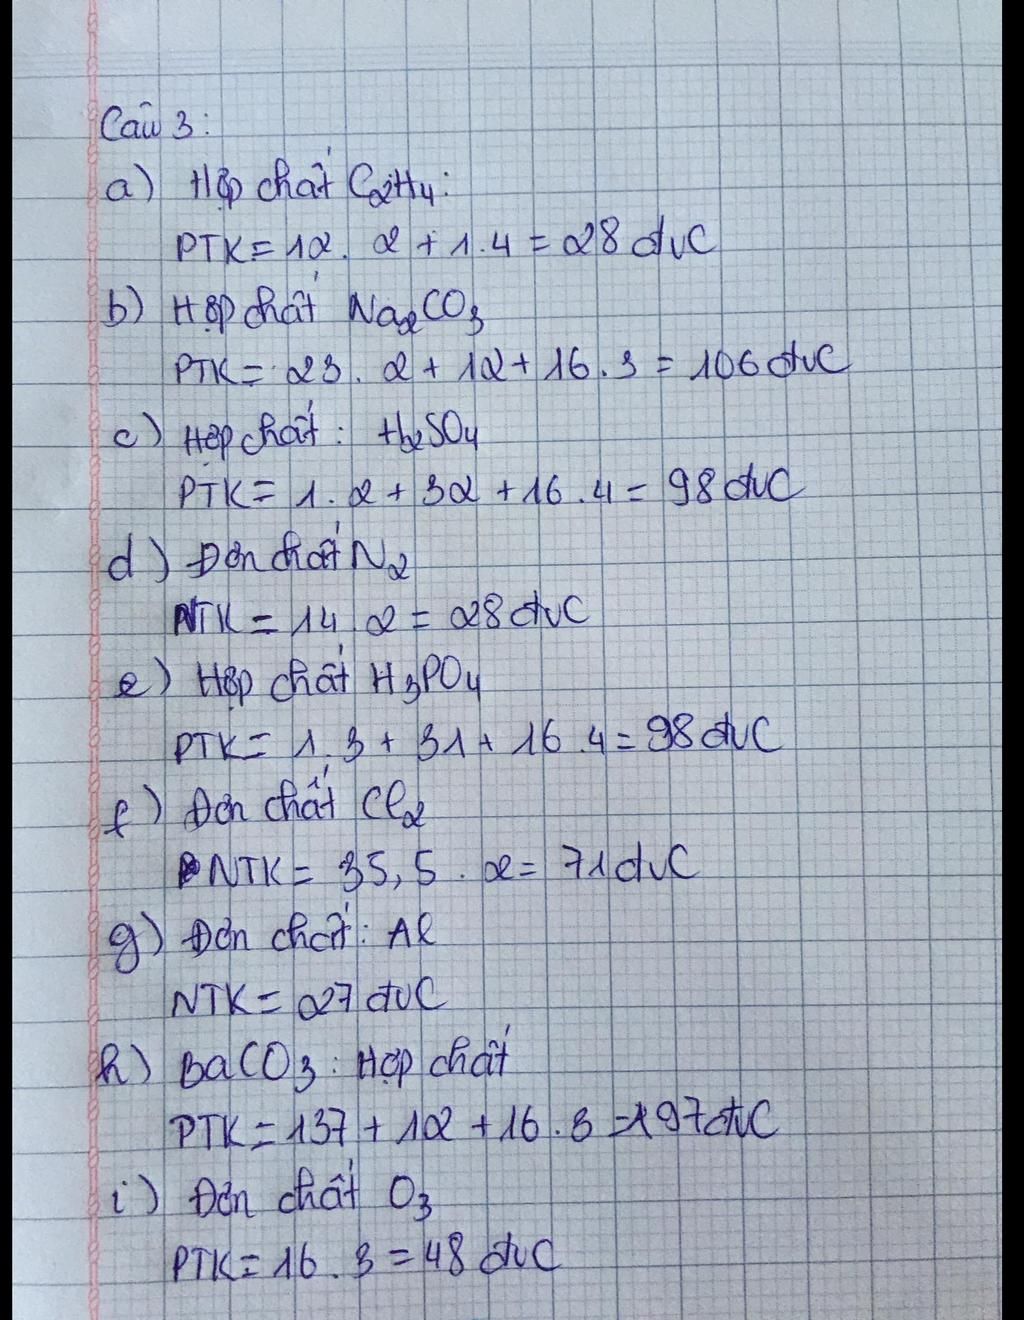 Câu 3:
a) Hợp chất C₂H₄:
PTK = 12. 2 + 1.4 = 28 đvC
b) Hợp chất Na₂CO₃
PTK = 23. 2 + 12 + 16.3 = 106 đvC
c) Hợp chất: H₂SO₄
PTK = 1.2 + 32 + 16.4 = 98 đvC
d) Đơn chất N₂
NTK = 14.2 = 28 đvC
e) Hợp chất H₃PO₄
PTK = 1.3 + 31 + 16.4 = 98 đvC
f) Đơn chất Cl₂
NTK = 35,5 . 2 = 71 đvC
g) Đơn chất: Al
NTK = 27 đvC
h) BaCO₃: Hợp chất
PTK = 137 + 12 + 16.3 = 197 đvC
i) Đơn chất O₃
PTK = 16.3 = 48 đvC